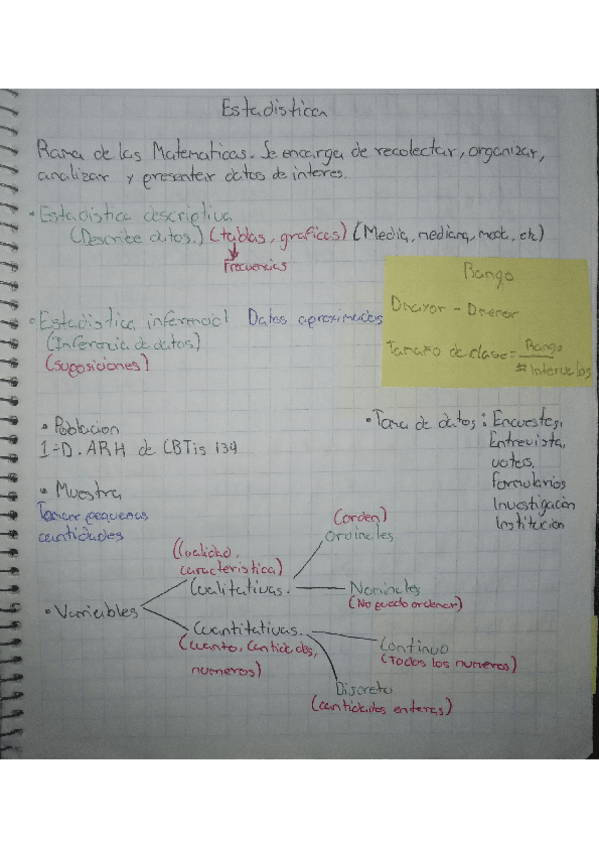 Estadistica
Rama de las Matematicas. Se encarga de recolectar, organizar,
analizar y presentar datos de interes.
• Estadistica descriptiva
(Describe datos.) (tablas, graficas) (Media, mediana, moda, etc)
Frecuencias
Rango
Dmayor - Dmenor
Tamaño de clase = Rango
# intervalos
• Estadistica inferencial Datos aproximados
(Inferencia de datos)
(suposiciones)
• Poblacion
1-D. ARH de CBTis 134
• Toma de datos: Encuestas,
Entrevista,
votos,
formularios
Investigación
Institución
• Muestra
Tomar pequeñas
cantidades
(orden)
Ordinales
(cualidad,
caracteristica)
Cualitativas.
Nominales
(No puedo ordenar)
• Variables
Cuantitativas.
(cuanto, cantidades,
numeros)
Continuo
(Todos los numeros)
Discreto
(cantidades enteras)